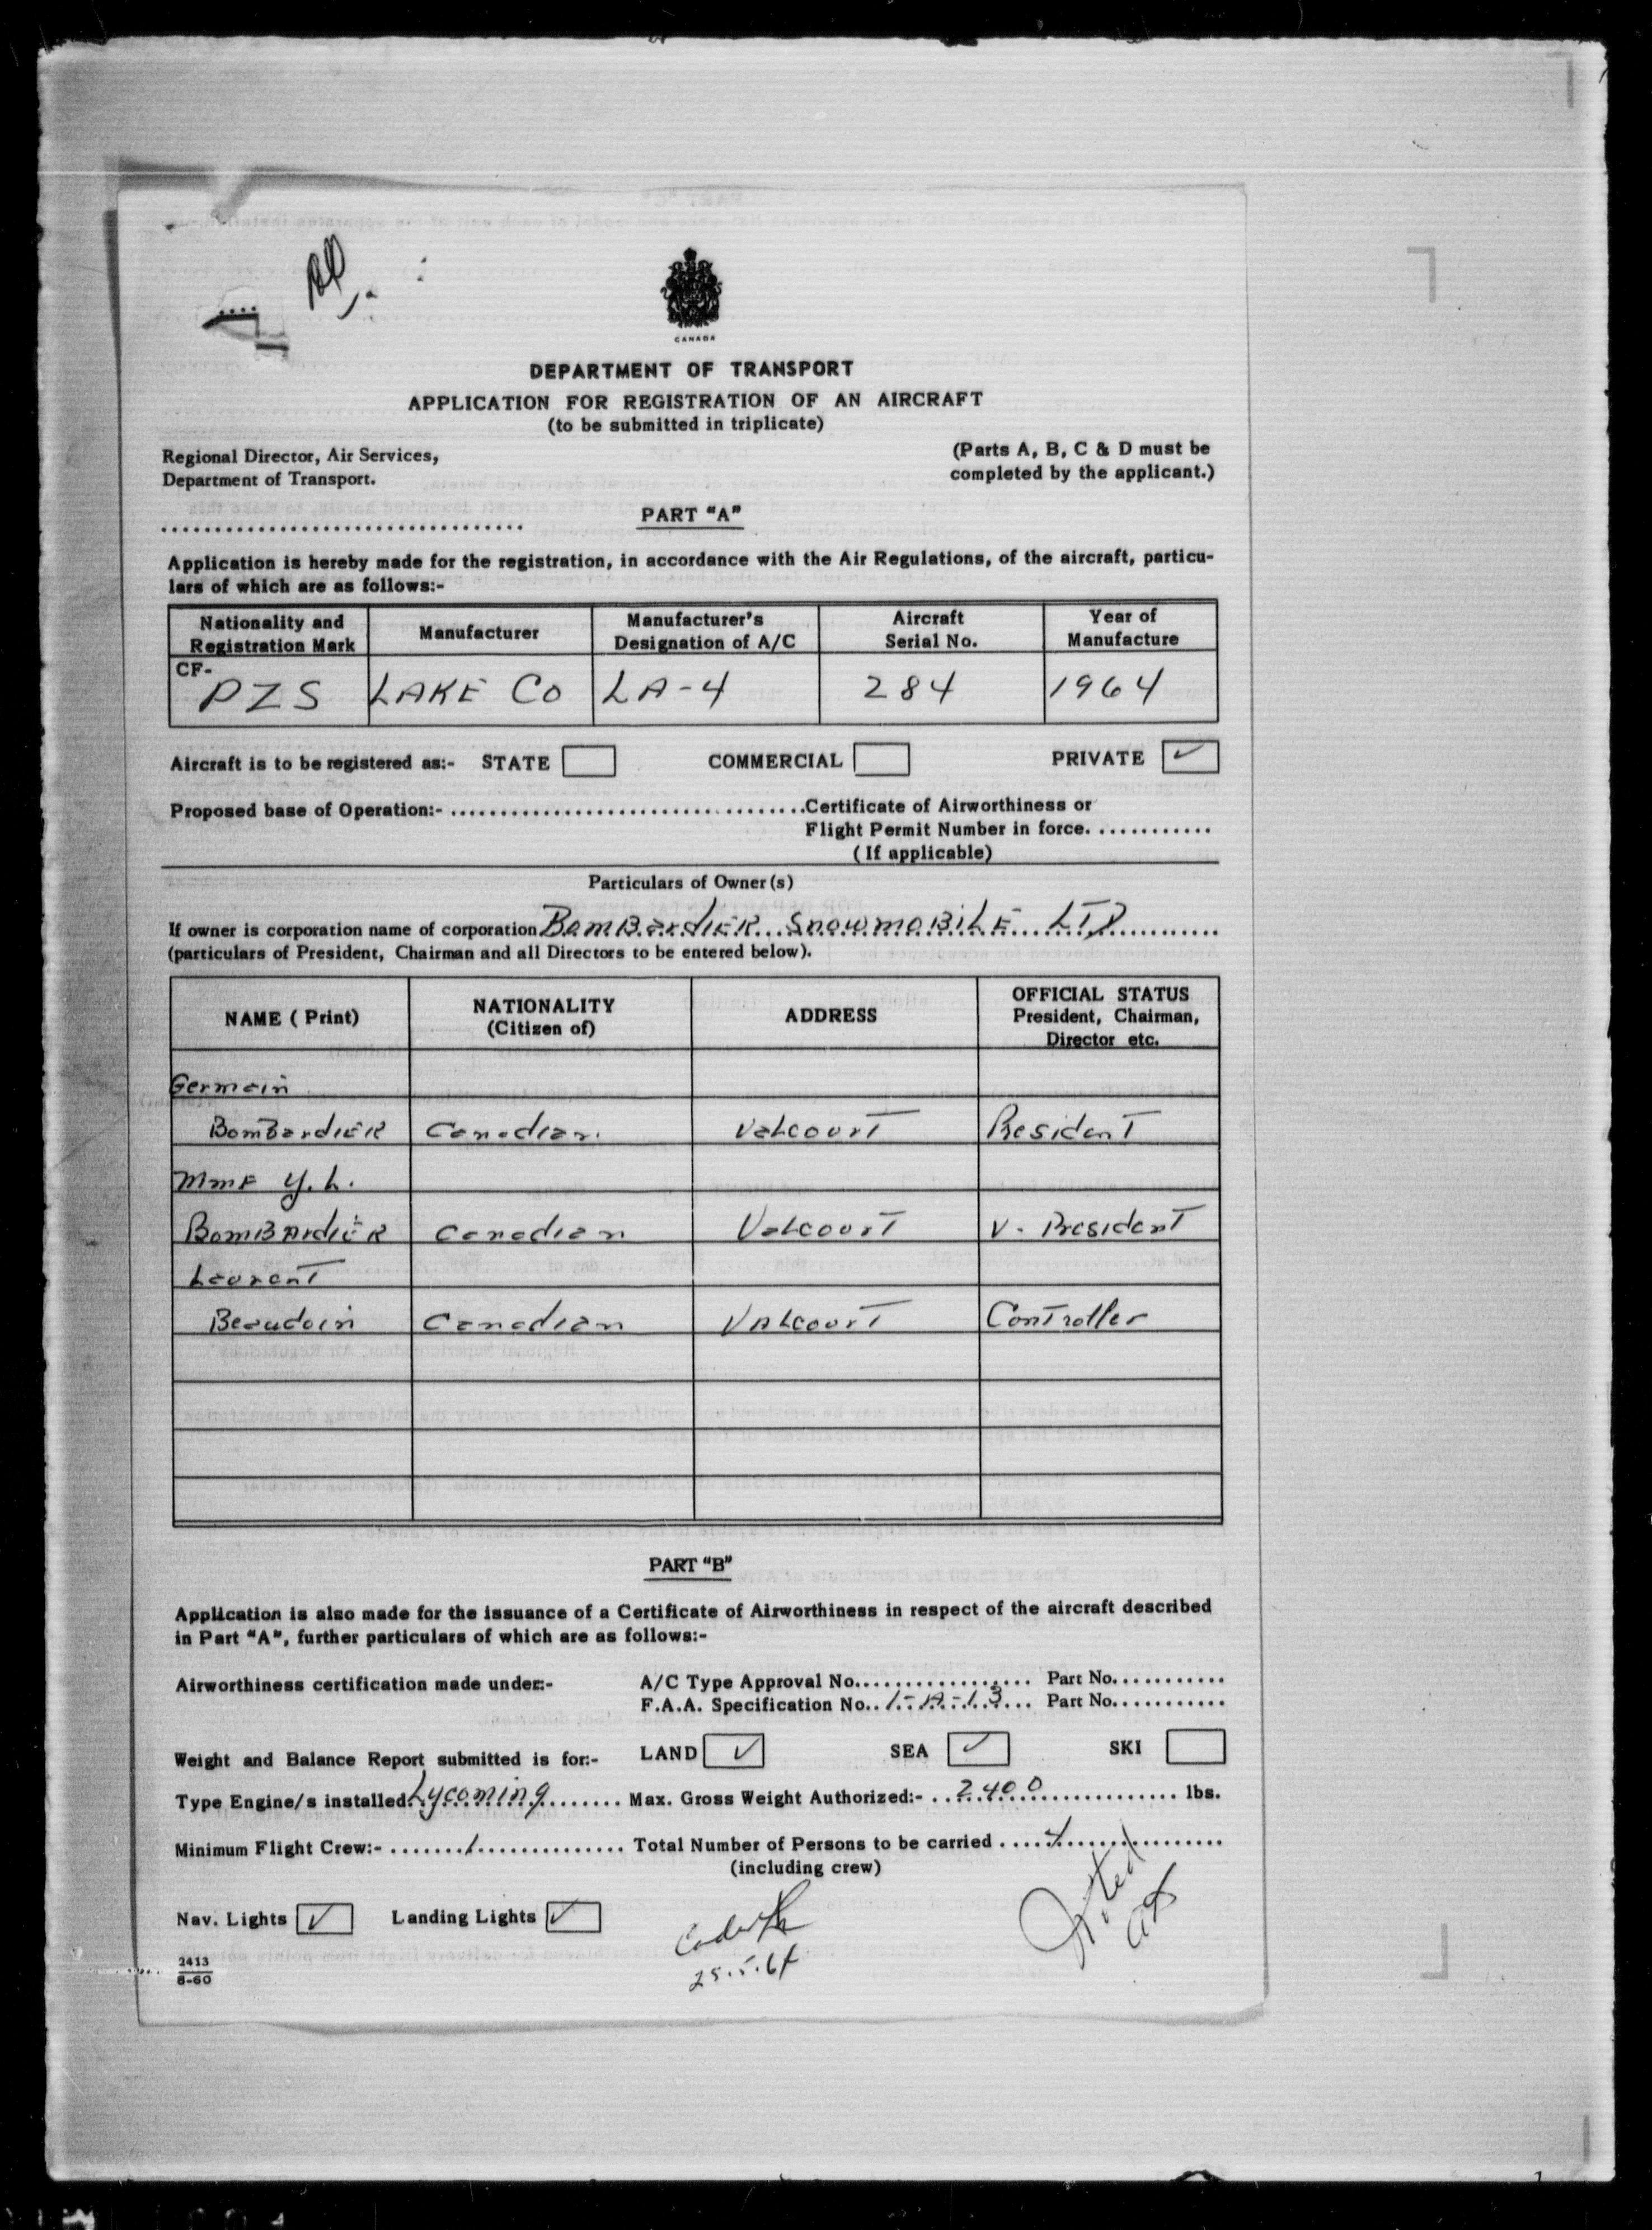 CANADA
DEPARTMENT OF TRANSPORT
APPLICATION FOR REGISTRATION OF AN AIRCRAFT
(to be submitted in triplicate)
Regional Director, Air Services,
Department of Transport.
(Parts A, B, C & D must be
completed by the applicant.)
PART "A"
Application is hereby made for the registration, in accordance with the Air Regulations, of the aircraft, particu-
lars of which are as follows:-
Nationality and Registration Mark Manufacturer Manufacturer's Designation of A/C Aircraft Serial No. Year of Manufacture
CF- PZS LAKE CO LA-4 284 1964
Aircraft is to be registered as:- STATE COMMERCIAL PRIVATE ✓
Proposed base of Operation:- Certificate of Airworthiness or
Flight Permit Number in force.
(If applicable)
Particulars of Owner(s)
If owner is corporation name of corporation BomBardiER SnowmoBiLE LTD
(particulars of President, Chairman and all Directors to be entered below).
NAME (Print) NATIONALITY (Citizen of) ADDRESS OFFICIAL STATUS President, Chairman, Director etc.
Germain
Bombardier Canadian Valcourt President
Mme Y.L.
Bombardier Canadian Valcourt V-President
Laurent
Beaudoin Canadian Valcourt Controller
PART "B"
Application is also made for the issuance of a Certificate of Airworthiness in respect of the aircraft described
in Part "A", further particulars of which are as follows:-
Airworthiness certification made under:- A/C Type Approval No. Part No.
F.A.A. Specification No. 1-A-13 Part No.
Weight and Balance Report submitted is for:- LAND ✓ SEA ✓ SKI
Type Engine/s installed Lycoming Max. Gross Weight Authorized:- 2400 lbs.
Minimum Flight Crew:- 1 Total Number of Persons to be carried 4
(including crew)
Nav. Lights ✓ Landing Lights ✓
25.5.64
2413
8-60